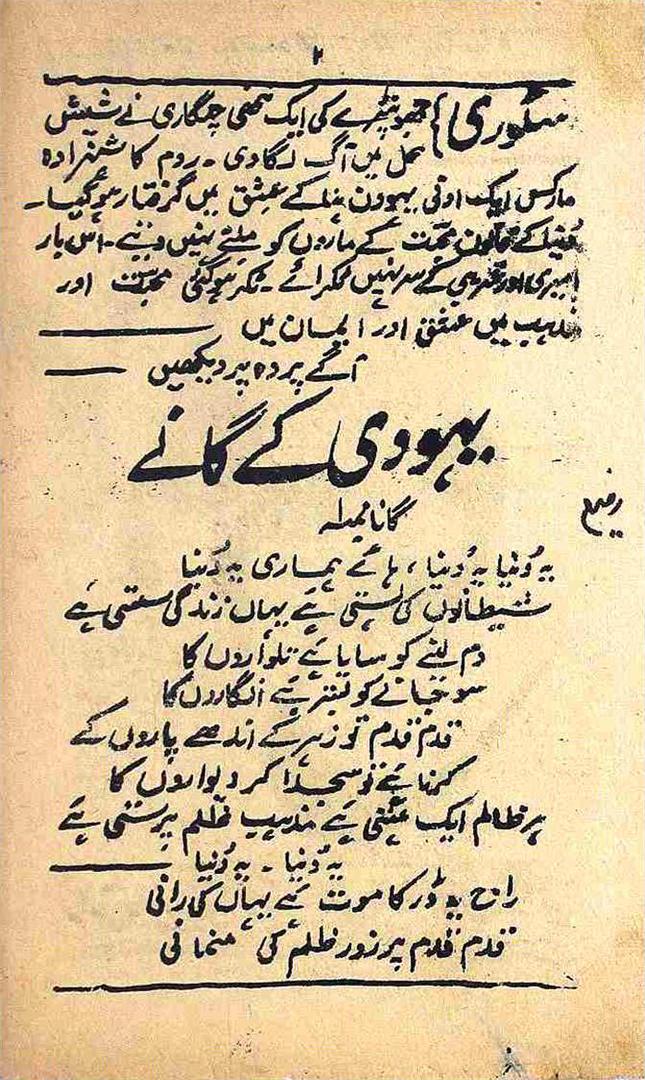 ۲
سٹوری } جھونپڑے کی ایک ننھی چنگاری نے شیش
محل میں آگ لگا دی ۔ روم کا شہزادہ
مارکس ایک ادنیٰ یہودن حنا کے عشق میں گرفتار ہو گیا ۔
دُنیا کے قانون محبت کے ماروں کو ملنے نہیں دیتے ۔ اس بار
امیری اور غریبی کے سر نہیں ٹکرائے ۔ ٹکر ہو گئی محبت اور
مذہب میں عشق اور ایمان میں
آگے پردہ پر دیکھیں
یہودی کے گانے
گانا نمبر ۱
رفیع
یہ دُنیا یہ دُنیا ، ہائے ہماری یہ دُنیا
شیطانوں کی بستی ہے یہاں زندگی سستی ہے
دم لینے کو سایا ہے تلواروں کا
سو جانے کو بستر ہے انگاروں کا
قدم قدم تو زہر کے اندھے پاروں کے
کرنا ہے تو سجدا کر دیواروں کا
ہر ظالم ایک ہستی ہے مذہب ظلم پرستی ہے
یہ دُنیا ۔ یہ دُنیا
راج یہ ڈر کا موت ہے یہاں کی رانی
قدم قدم پر زور ظلم کی منمانی